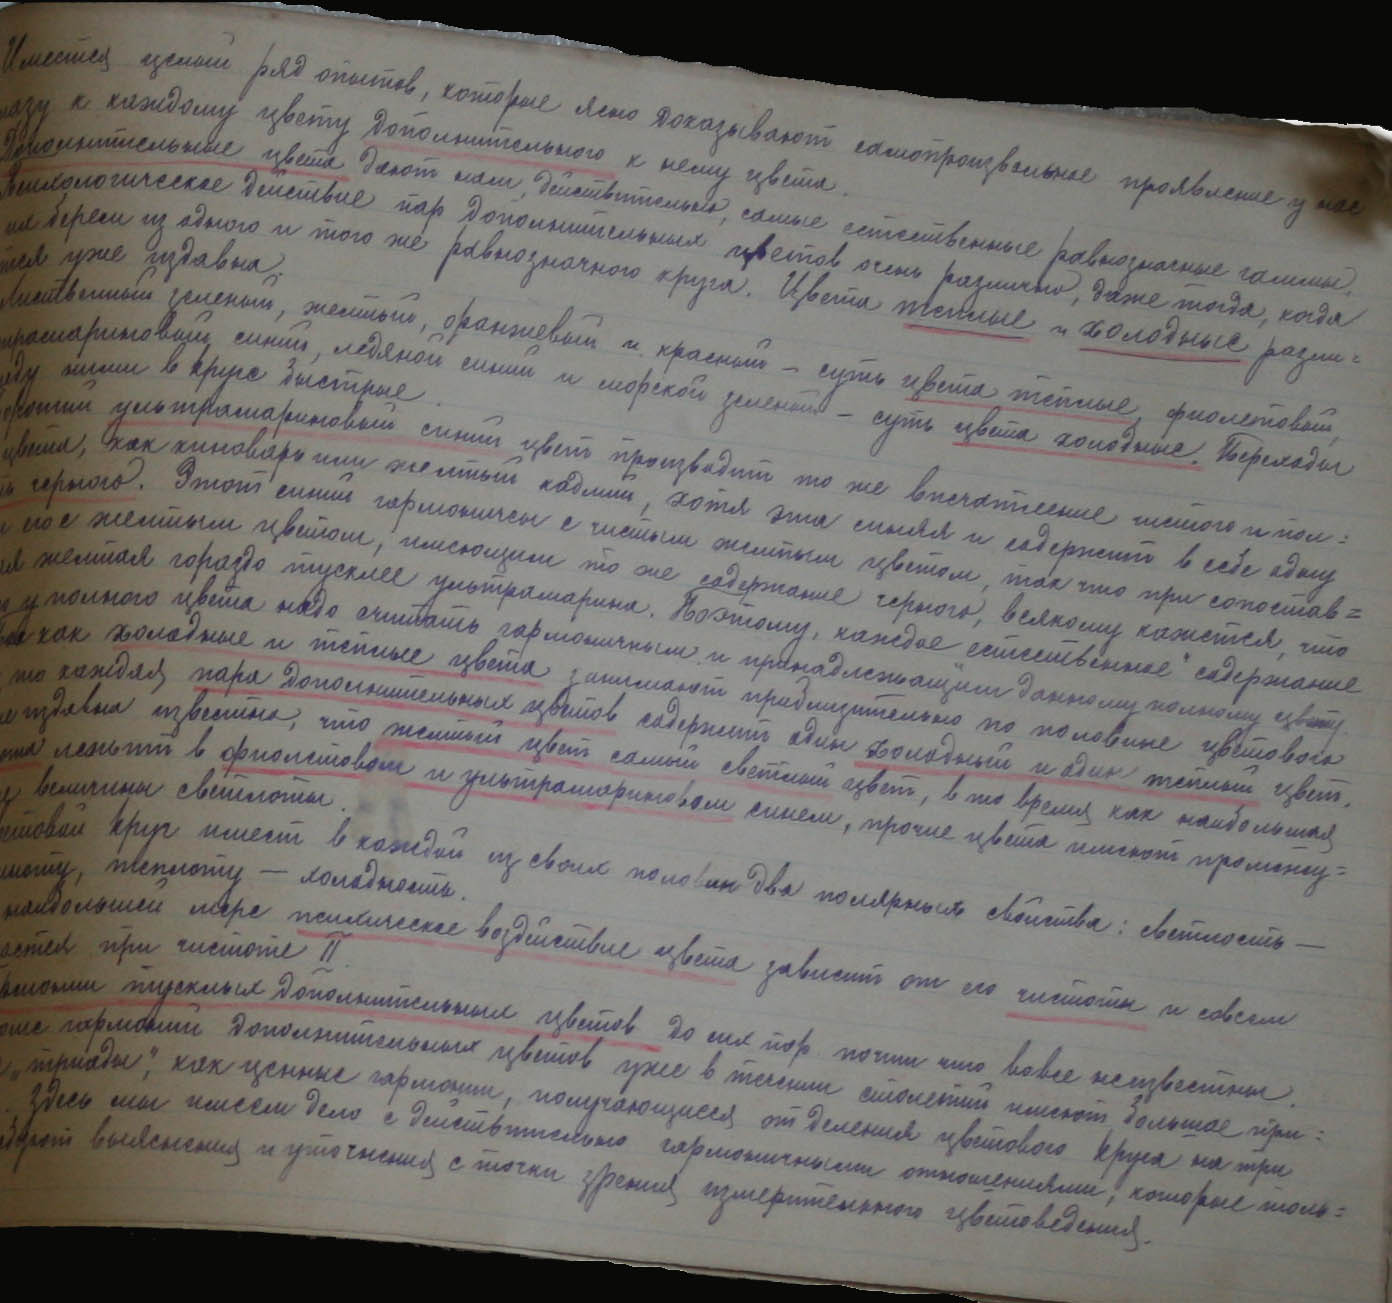 Имеется целый ряд опытов, которые ясно доказывают самопроизвольное проявление у нас
глазу к каждому цвету дополнительного к нему цвета.
Дополнительные цвета дают нам, действительно, самые естественные равнозначные гаммы.
Психологическое действие пар дополнительных цветов очень различно, даже тогда, когда
их берем из одного и того же равнозначного круга. Цвета теплые и холодные разли=
тся уже издавна.
Лиственный зеленый, желтый, оранжевый и красный – суть цвета теплые, фиолетовый,
рамариновый, синий, ледяной синий и морской зеленый – суть цвета холодные. Переходы
ду ними в круге быстрые.
ультрамариновый синий цвет производит то же впечатление чистого и пол=
цвета, как киноварь или желтый кадмий, хотя эта синяя и содержит в себе одну
ть черного. Этот синий гармоничен с чистым желтым цветом, так что при сопостав=
и его с желтым цветом, имеющим то же содержание черного, всякому кажется, что
ая желтая гораздо тусклее ультрамарина. Поэтому, каждое „естественное" содержание
го у полного цвета надо считать гармоничным и принадлежащим данному полному цвету.
как холодные и теплые цвета занимают приблизительно по половине цветового
то каждая пара дополнительных цветов содержит один холодный и один теплый цвет.
издавна известно, что желтый цвет самый светлый цвет, в то время как наибольшая
ота лежит в фиолетовом и ультрамариновом синем, прочие цвета имеют промежу=
величины светлоты.
етовой круг имеет в каждой из своих половин два полярных свойства: светлость –
ноту, теплоту – холодность.
наибольшей мере психическое воздействие цвета зависит от его чистоты и совсем
ается при чистоте П
тусклых дополнительных цветов до сих пор почти что вовсе неизвестны.
оме гармоний дополнительных цветов уже в течении столетий имеют большое при=
„триады", как ценные гармонии, получающиеся от деления цветового круга на три
. Здесь мы имеем дело с действительно гармоничными отношениями, которые толь=
ебуют выяснения и уточнения с точки зрения измерительного цветоведения.